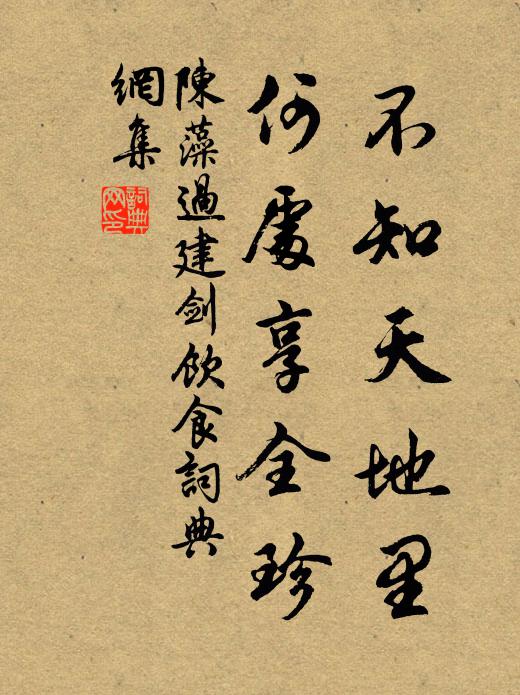 不知天地里
何處享全珍
陳藻過建劍飲食詞典
網集
詞典
网印